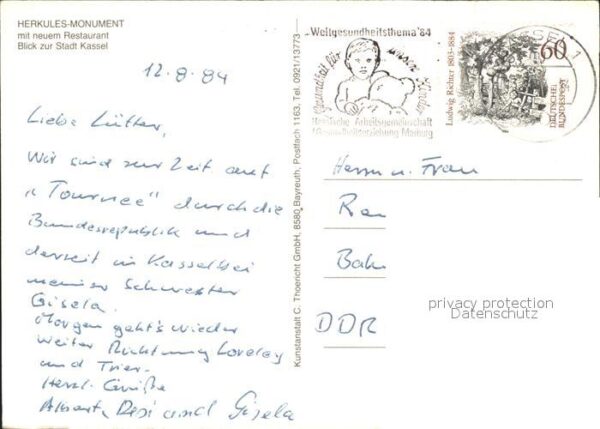 HERKULES-MONUMENT
mit neuem Restaurant
Blick zur Stadt Kassel
12.8.84
Liebe Lütter,
Wir sind zur Zeit auf
"Tournee" durch die
Bundesrepublik und
derzeit in Kassel bei
meiner Schwester
Gisela.
Morgen geht's wieder
weiter Richtung Loreley
und Trier.
Herzl. Grüße
und Gisela
Kunstanstalt C. Thoericht GmbH, 8580 Bayreuth, Postfach 1163, Tel. 0921/13773
Weltgesundheitsthema '84
Gesundheit für unsere Kinder
Hessische Arbeitsgemeinschaft
f. Gesundheitserziehung Marburg
Ludwig Richter 1803-1884
60
DEUTSCHE
BUNDESPOST
KASSEL 1
Herrn u. Frau
DDR
privacy protection
Datenschutz